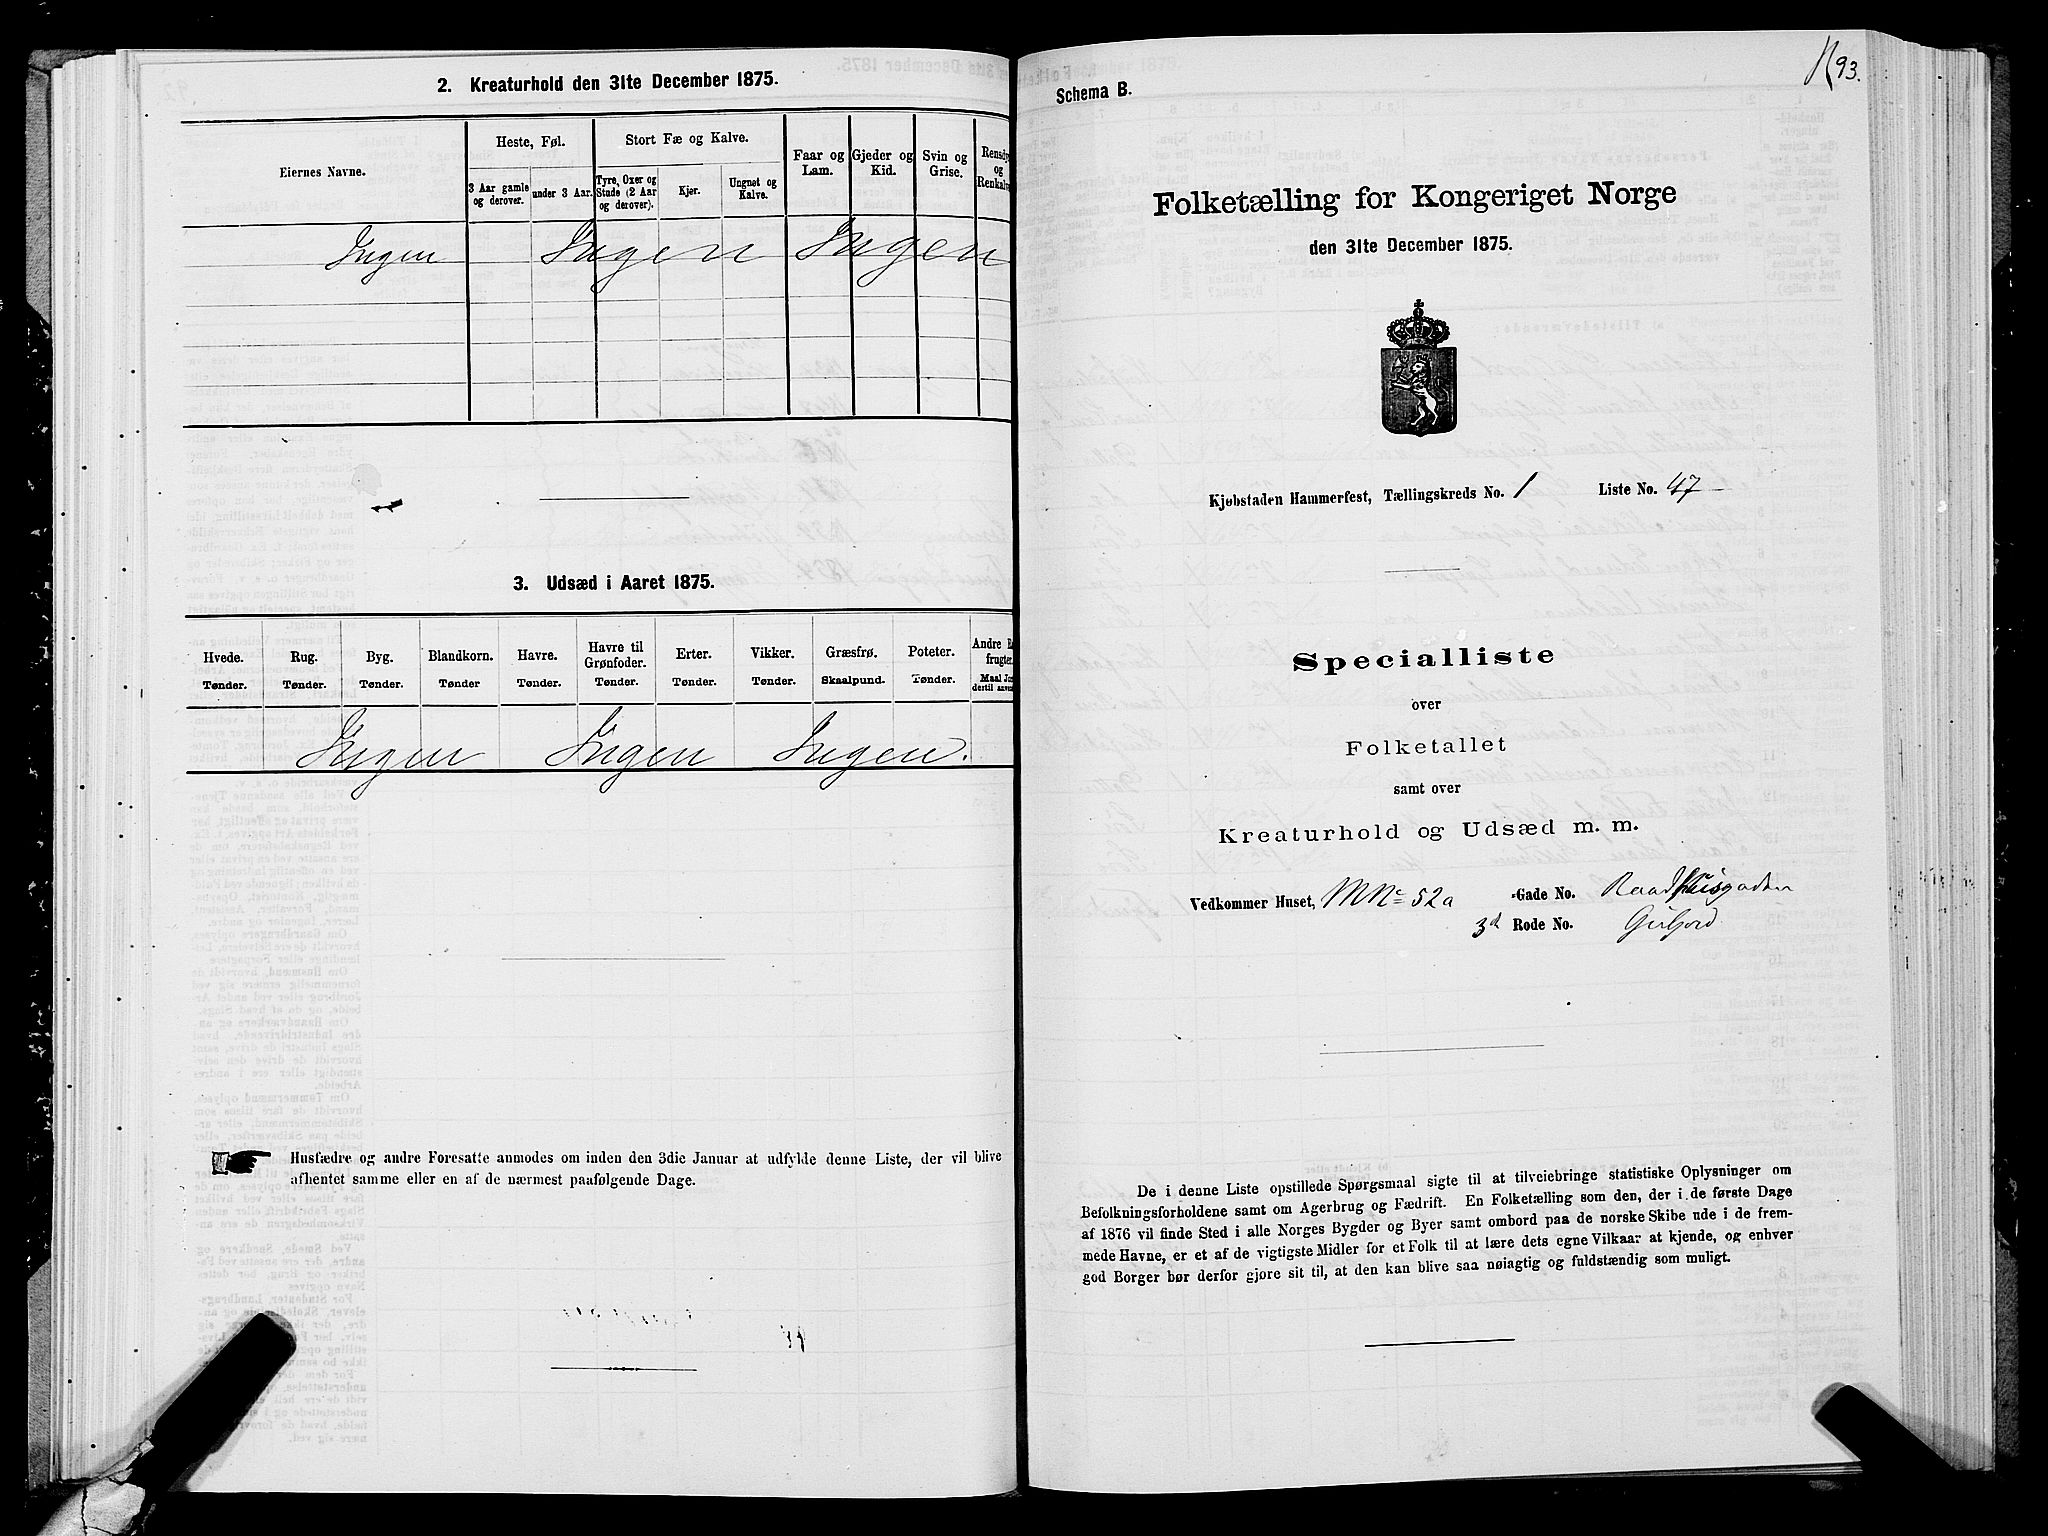 2. Kreaturhold den 31te December 1875.
Eiernes Navne.
Heste, Føl.
Stort Fæ og Kalve.
Faar og Lam.
Gjeder og Kid.
Svin og Grise.
Rensdy
og
Renkalve
3 Aar gamle og derover.
under 3 Aar.
Tyre, Oxer og Stude (2 Aar og derover).
Kjør.
Ungnøt og Kalve.
Ingen Ingen Ingen
3. Udsæd i Aaret 1875.
Hvede. Rug. Byg. Blandkorn. Havre. Havre til Grønfoder. Erter. Vikker. Græsfrø. Poteter. Andre
frugter.
Tønder. Tønder. Tønder. Tønder Tønder. Tønder. Tønder. Tønder. Skaalpund. Tønder. Maal
dertil
Ingen Ingen Ingen.
Husfædre og andre Foresatte anmodes om inden den 3die Januar at udfylde denne Liste, der vil blive
afhentet samme eller en af de nærmest paafølgende Dage.
93.
Schema B.
Folketælling for Kongeriget Norge
den 31te December 1875.
Kjøbstaden Hammerfest, Tællingskreds No. 1 Liste No. 47
Specialliste
over
Folketallet
samt over
Kreaturhold og Udsæd m. m.
Vedkommer Huset, MNo 52a -Gade No. Raadhusgaden
3d Rode No.
De i denne Liste opstillede Spørgsmaal sigte til at tilveiebringe statistiske Oplysninger om
Befolkningsforholdene samt om Agerbrug og Fædrift. En Folketælling som den, der i de første Dage
af 1876 vil finde Sted i alle Norges Bygder og Byer samt ombord paa de norske Skibe ude i de frem-
mede Havne, er et af de vigtigste Midler for et Folk til at lære dets egne Vilkaar at kjende, og enhver
god Borger bør derfor gjøre sit til, at den kan blive saa nøiagtig og fuldstændig som muligt.